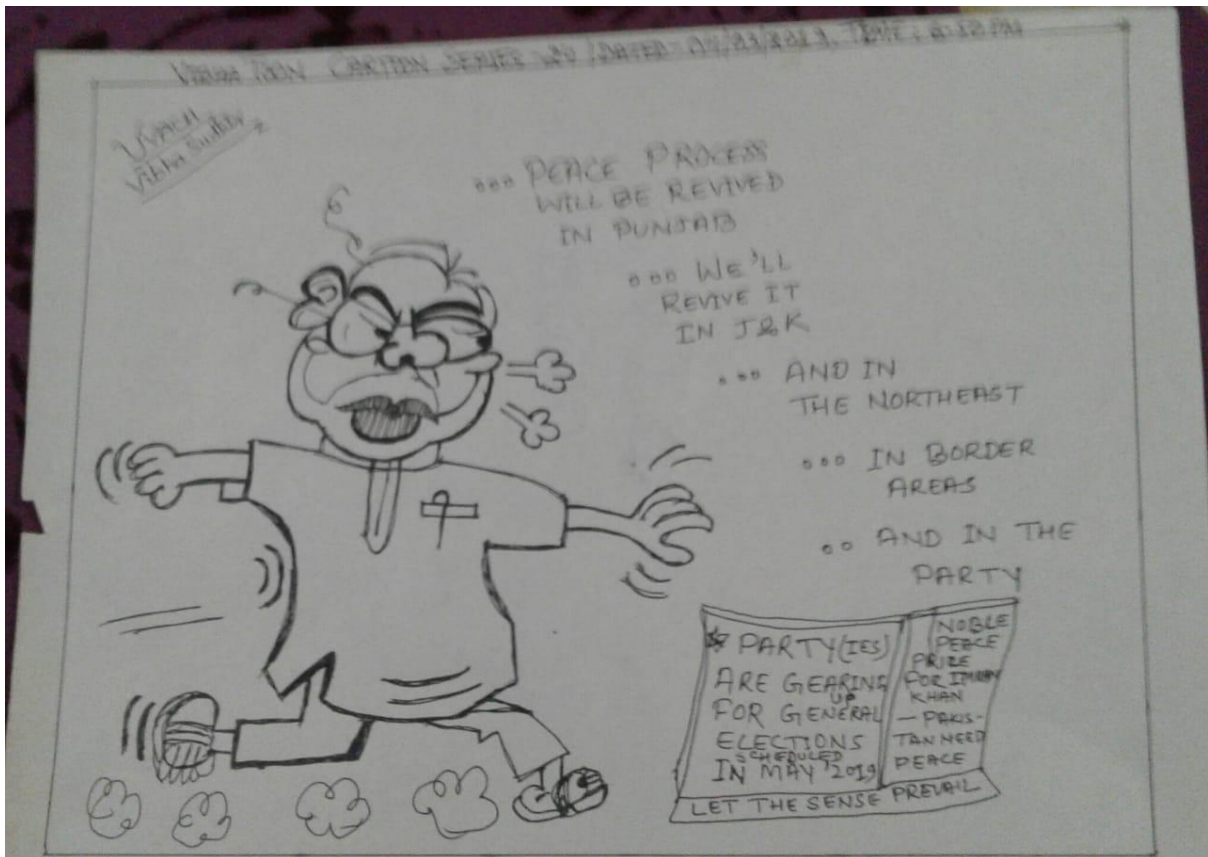 CARTOON SERIES
UVACH
Vibha
... PEACE PROCESS
WILL BE REVIVED
IN PUNJAB
... WE'LL
REVIVE IT
IN J&K
... AND IN
THE NORTHEAST
... IN BORDER
AREAS
.. AND IN THE
PARTY
* PARTY(IES)
ARE GEARING
UP
FOR GENERAL
ELECTIONS
SCHEDULED
IN MAY '2019
NOBLE
PEACE
PRIZE
FOR IMRAN
KHAN
— PAKIS-
TAN NEED
PEACE
LET THE SENSE PREVAIL